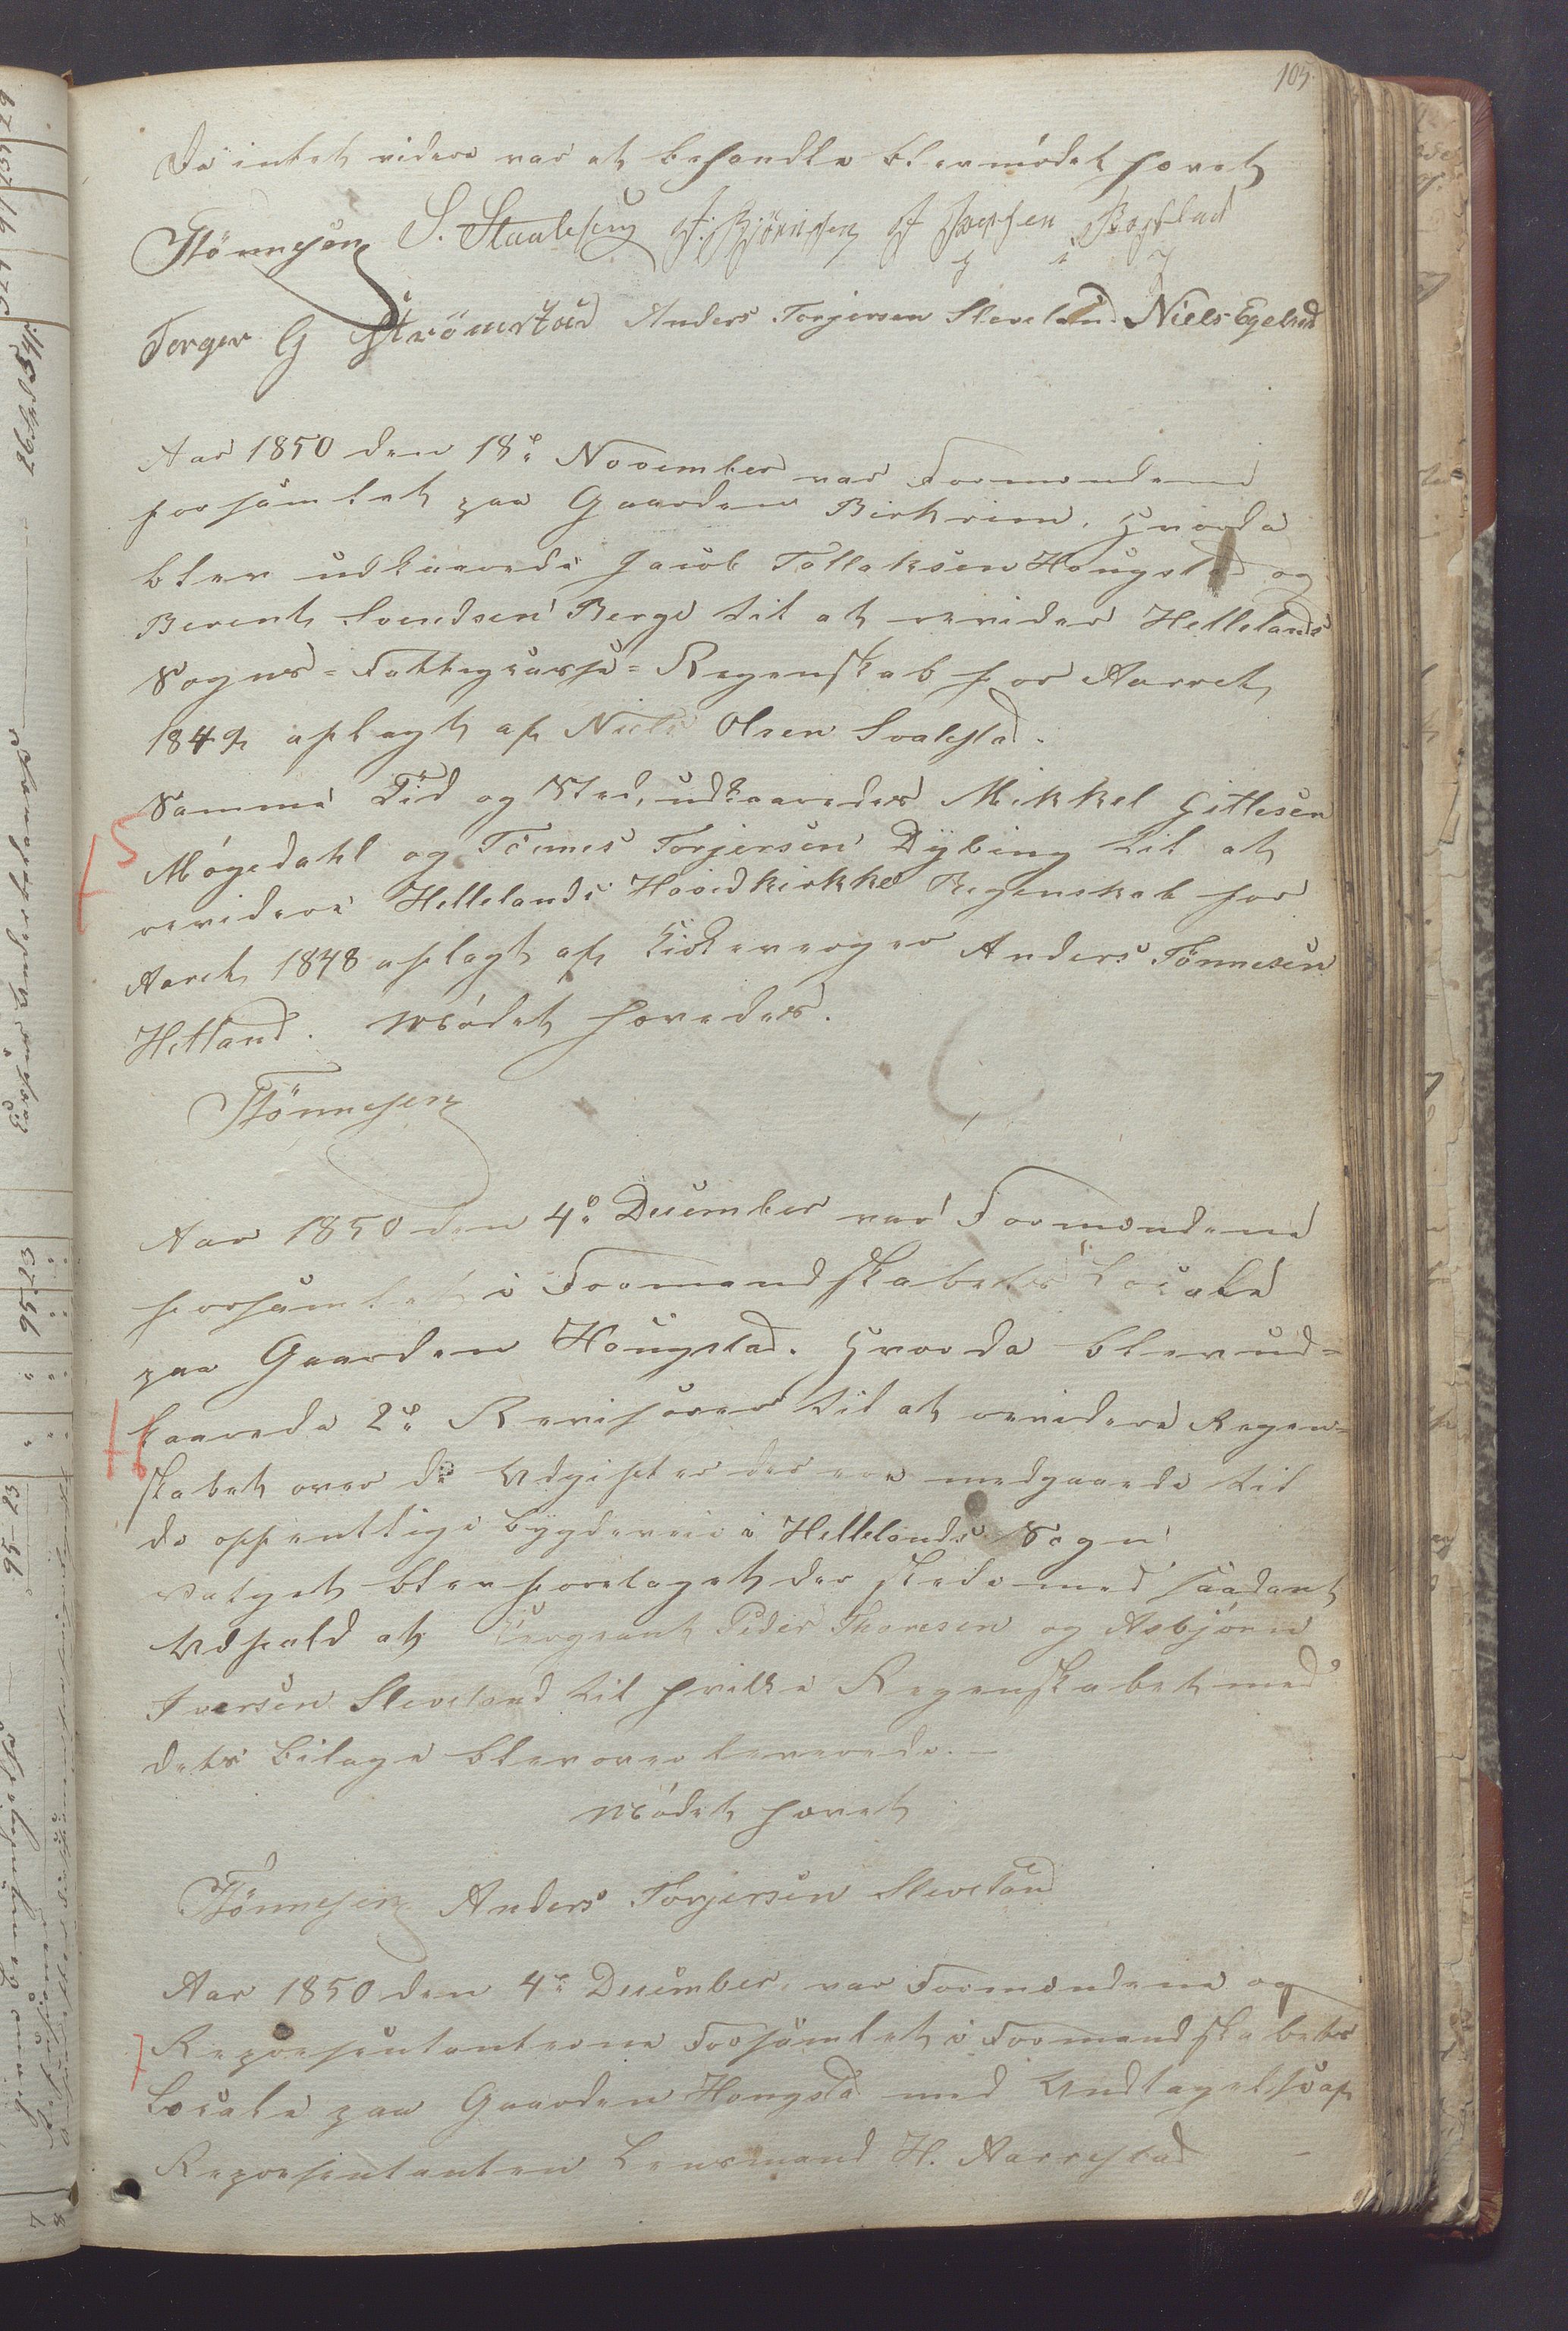 105.
Da intet videre var at behandle blev mödet hævet
Tönnesen S. Staalesen J. Björnsen
Torger G Strömstad Anders Torjersen Sleveland Niels Egelad
Aar 1850 den 18de November var Formændene
forsamlet paa Gaarden Birkrem. Hvorda
blev udkaarede Jacob Tollaksen Haugstad og
Berent Svendsen Berge til at revidere Hellelands
Sogns-Fattigcasse-Regenskab for Aarret
1849 aflagt af Niels Olsen Svalestad.
Samme Tid og Sted, udkaaredes Mikkel Gitlesen
Mögedahl og Tönnes Torjersen Dybing til at
revidere Hellelands Hovedkirkke Regenskab for
Aaret 1848 aflagt af Kirkeverger Anders Tönnesen
Hetland. Mödet hævedes.
Tönnesen
Aar 1850 den 4de December var Formændene
forsamlet i Formandskabets Locale
paa Gaarden Hougstad. Hvorda blev ud-
kaarede 2de Revisorer til at revidere Regen-
skabet over de Udgifter der ere medgaaede til
de offentlige bygdeveie i Hellelands Sogn
Valget blev foretaget der skede med saadant
Udfald at Sergeant Peder Thoresen og Asbjörn
Iversen Sleveland til hvilke Regenskabet med
dets Bilage blev overleverede.-
Mödet hævet
Tönnesen Anders Torjersen Sleveland
Aar 1850 den 4de December var Formændene og
Repræsentanterne Forsamlet i Formandskabets
Locale paa Gaarden Hougstad med Undtagelse af
Repræsentanten Lensmand H. Aarrestad -